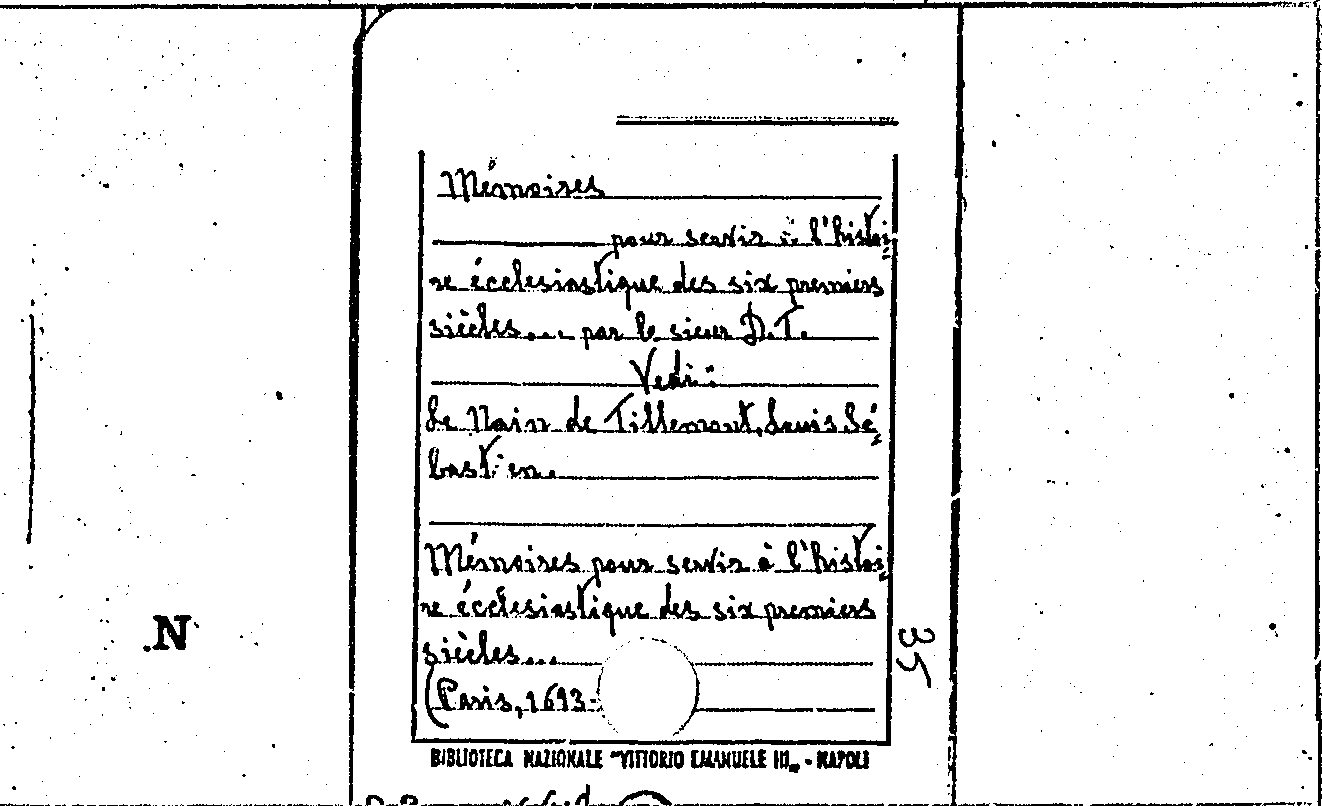 Mémoires
pour servir à l'histoi-
re écclesiastique des six premiers
siècles... par le sieur D.T.
Vedi:
Le Nain de Tillemont, Louis Sé-
bastien.
Mémoires pour servir à l'histoi-
re écclesiastique des six premiers
siècles...
(Paris, 1693-
35
.N
BIBLIOTECA NAZIONALE "VITTORIO EMANUELE III„ - NAPOLI